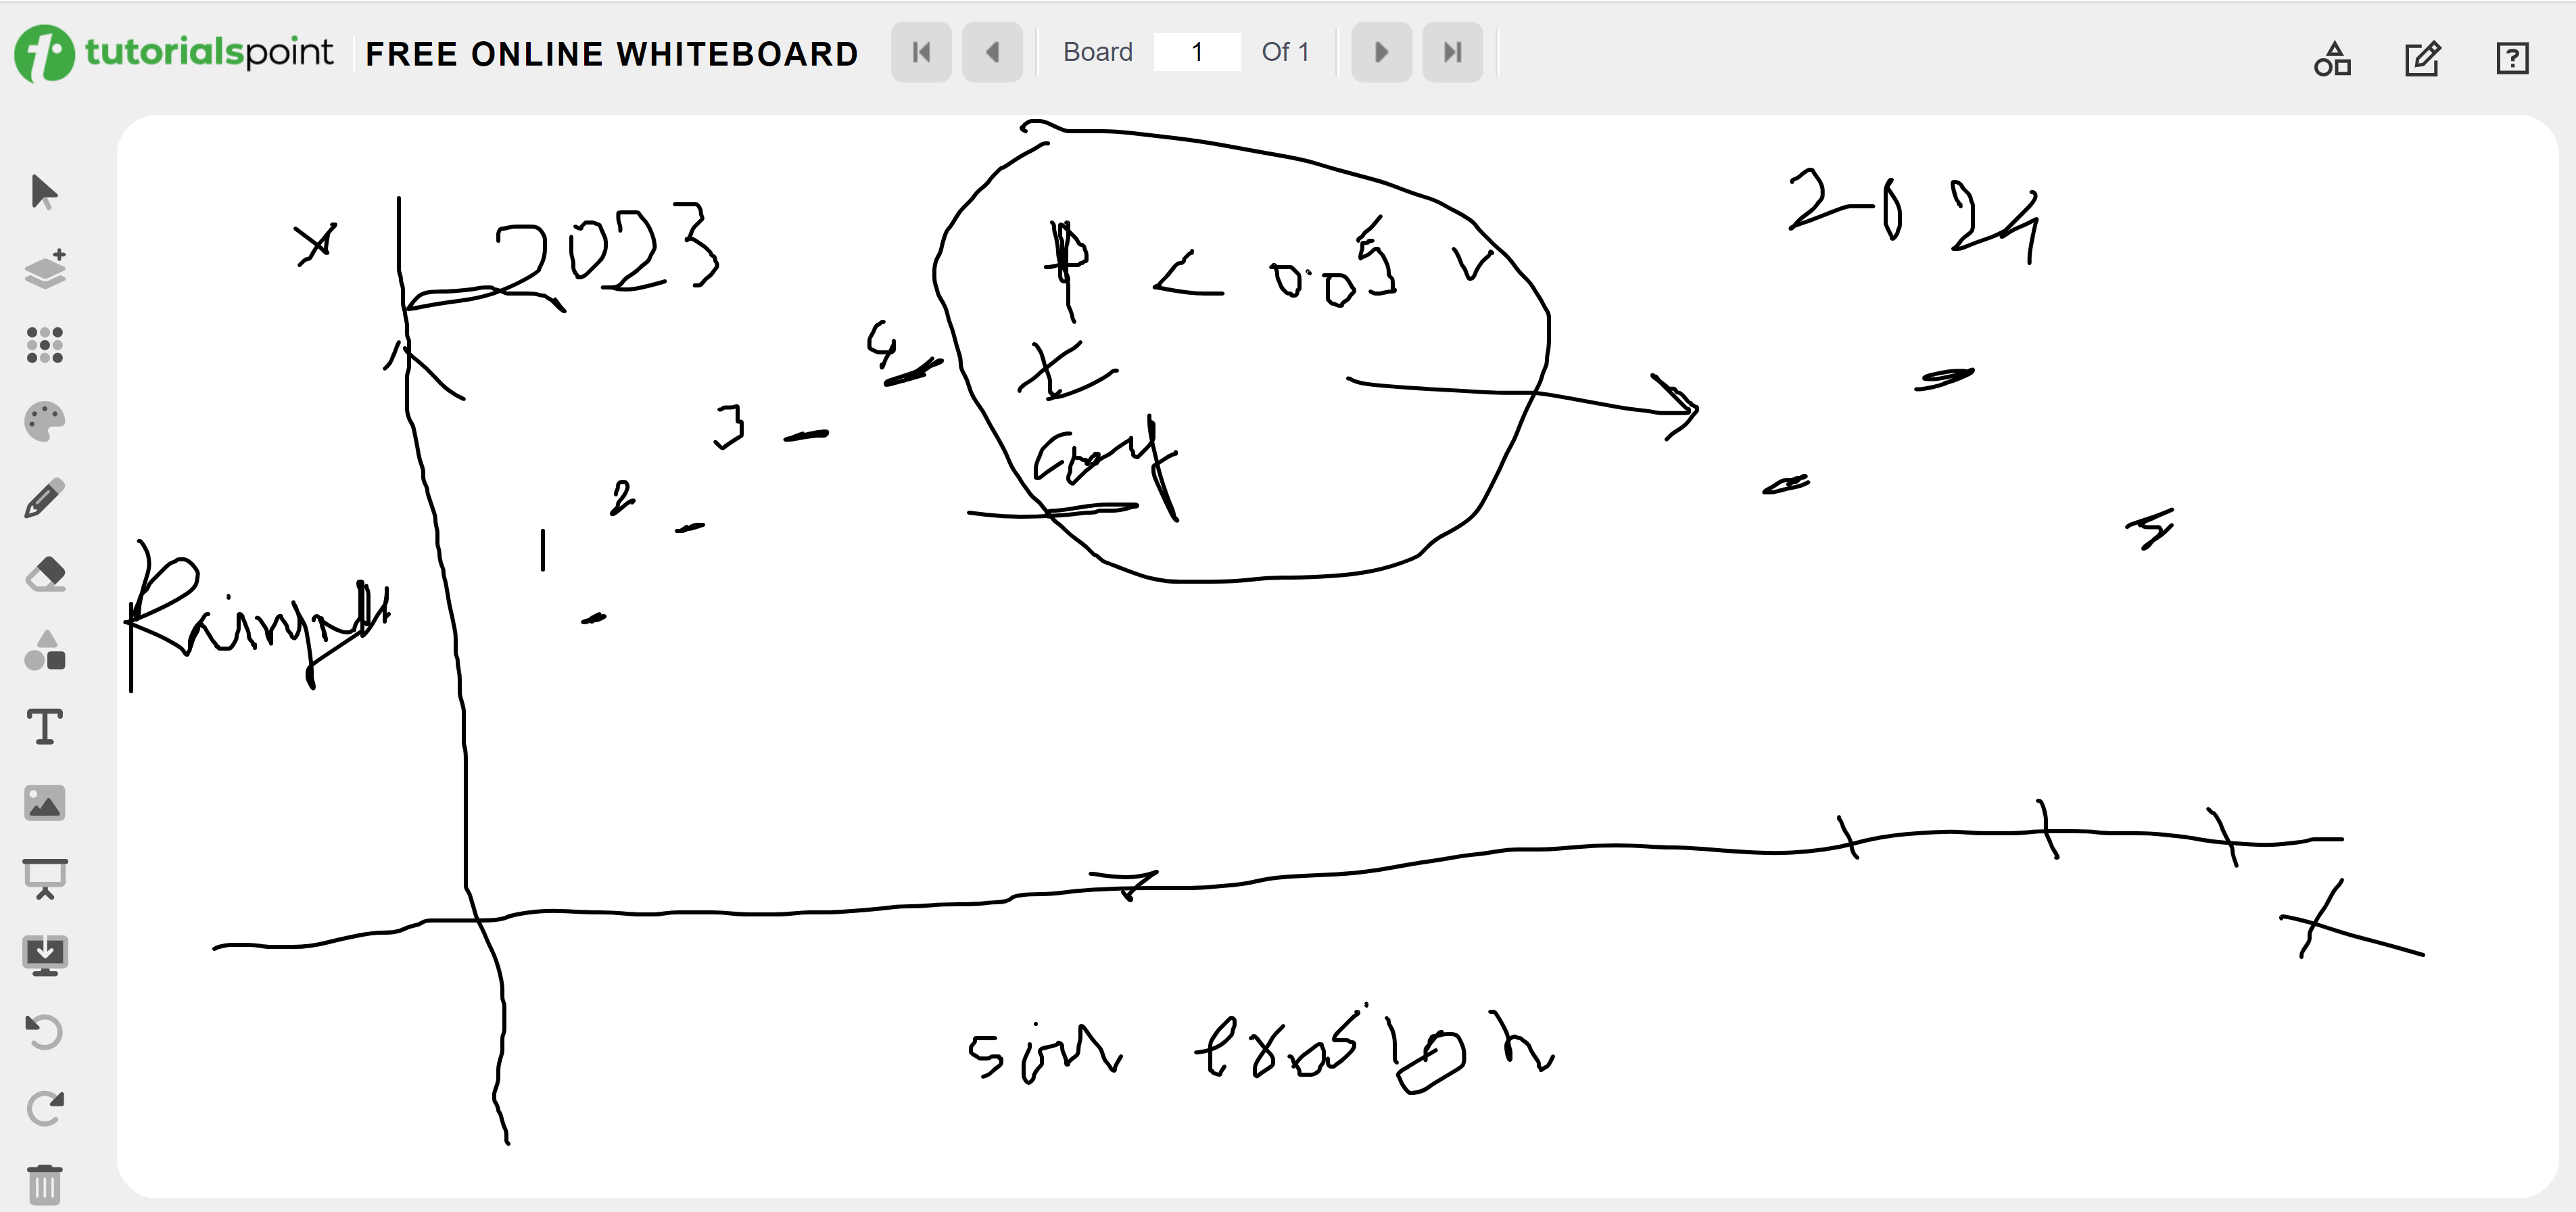 tutorialspoint FREE ONLINE WHITEBOARD Board 1 Of 1
x 2023
2024
P < 0.05
x
coef
4
3
2
1
Rainfall
5
x
soil erosion